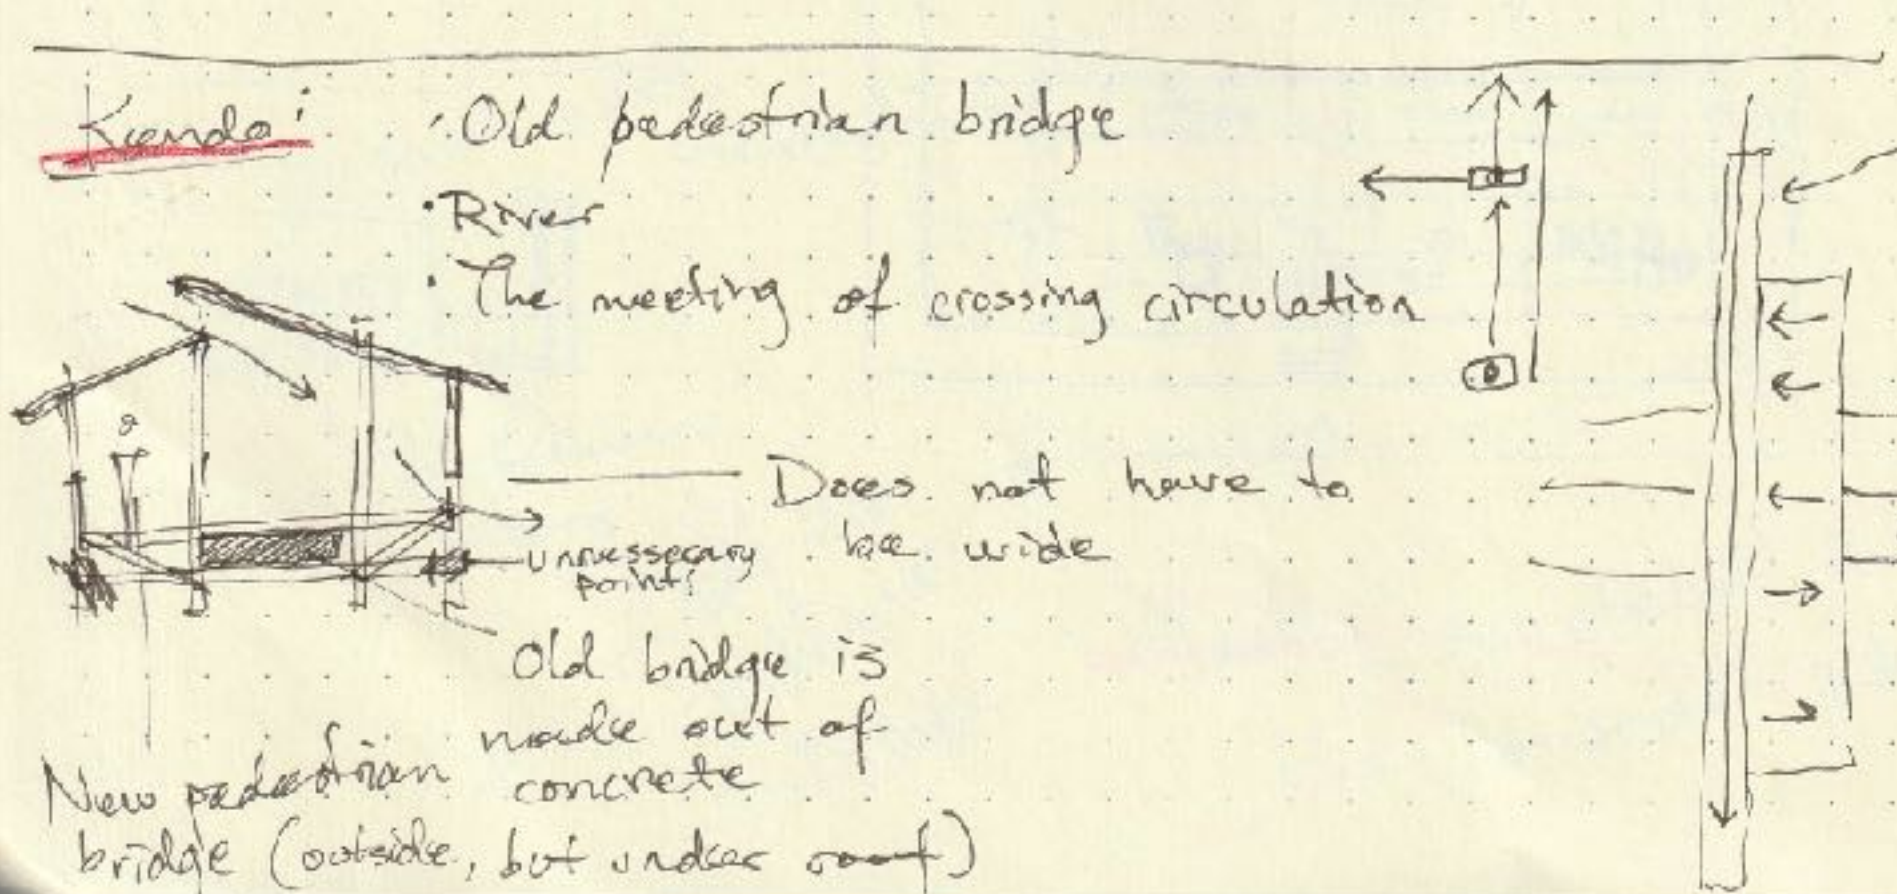 · Old pedestrian bridge
· River
· The meeting of crossing circulation
Does not have to
be wide
unnessecary
point!
Old bridge is
made out of
concrete
New pedestrian
bridge (outside, but under roof)